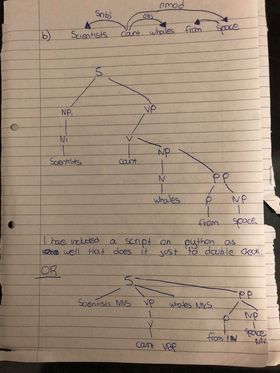 nmod
Subj obj
b) Scientists count whales from space
S
NP VP
N V NP
Scientists count N PP
whales P NP
from space
I have included a script on python as
well that does it just to double check.
OR
S
Scientists NNS VP whales NNS PP
V P NP
count VBP from IN space
NN